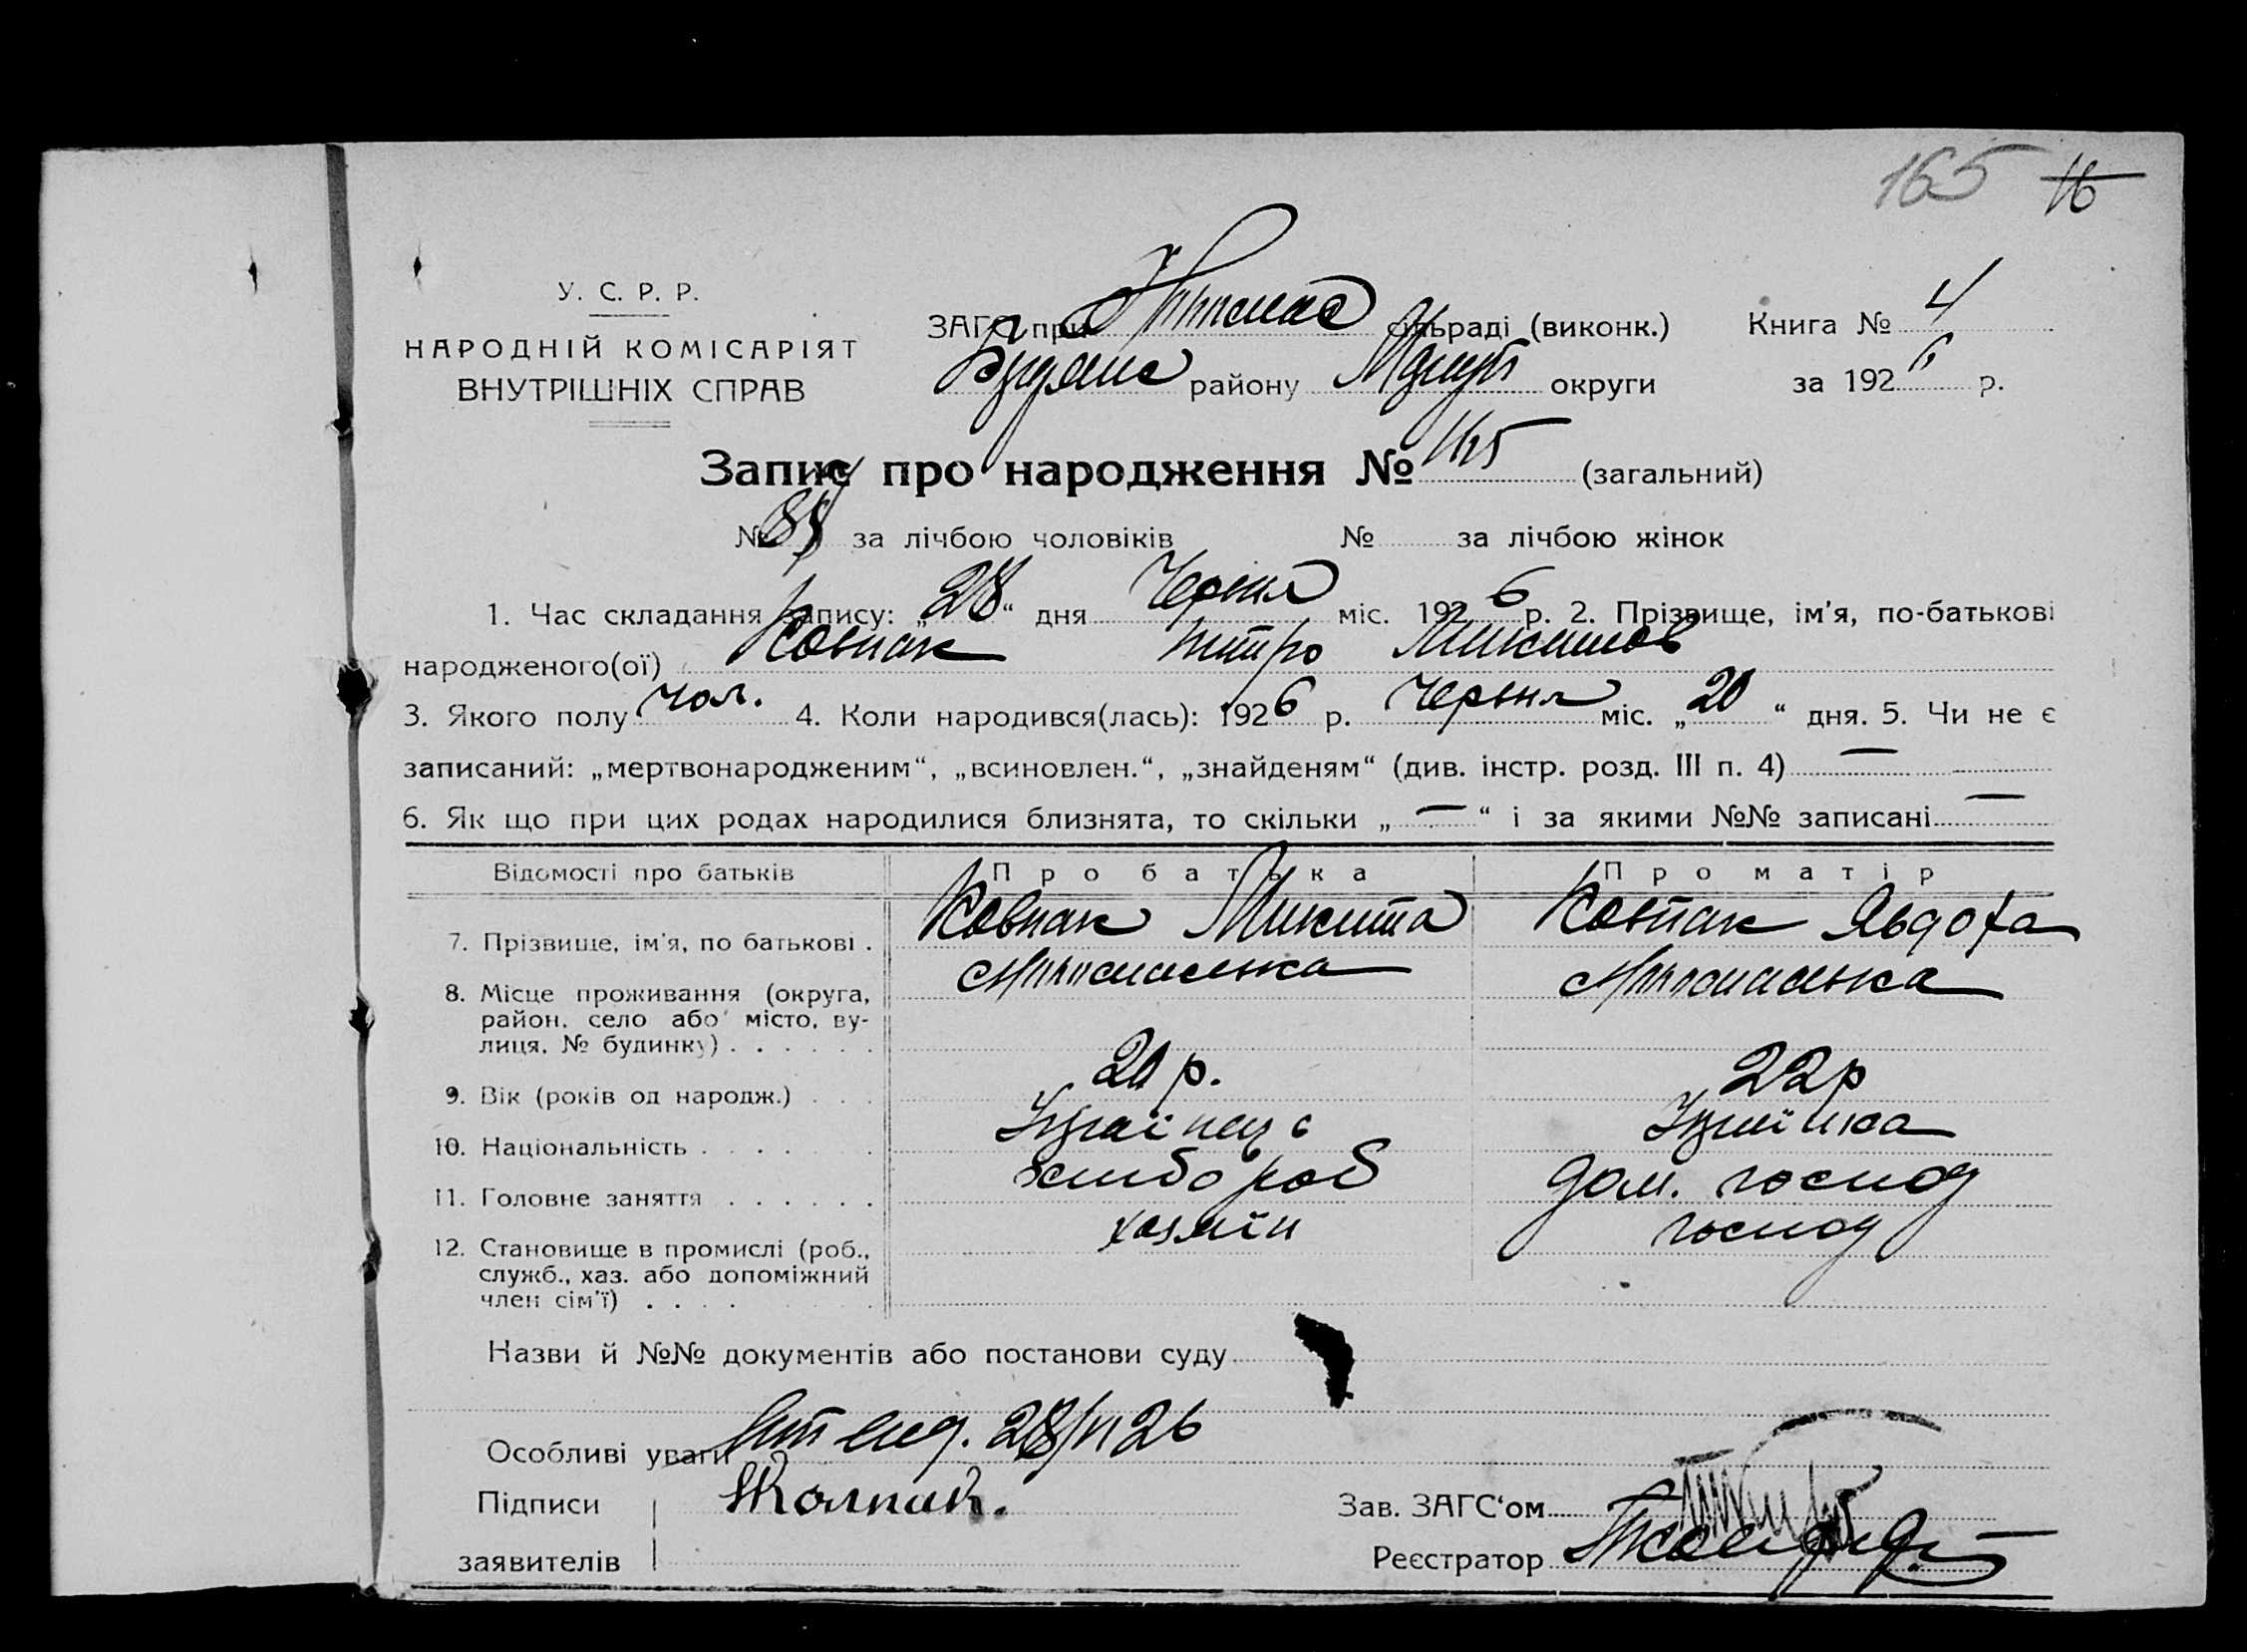 165 16
У. С. Р. Р.
НАРОДНІЙ КОМІСАРІЯТ
ВНУТРІШНІХ СПРАВ
ЗАГС при сільраді (виконк.) Книга № 4
району Маріуп округи за 1926 р.
Запис про народження № 165 (загальний)
№ за лічбою чоловіків № за лічбою жінок
1. Час складання запису: „28“ дня Червня міс. 1926 р. 2. Прізвище, ім'я, по-батькові
народженого(ої) Ковпак Петро Микитов
3. Якого полу чол. 4. Коли народився(лась): 1926 р. Червня міс. „20“ дня. 5. Чи не є
записаний: „мертвонародженим“, „всиновлен.“, „знайденям“ (див. інстр. розд. III п. 4) —
6. Як що при цих родах народилися близнята, то скільки „—“ і за якими №№ записані —
Відомості про батьків Про батька Про матір
7. Прізвище, ім'я, по батькові . Ковпак Микита Ковпак Явдоха
8. Місце проживання (округа,
район, село або місто, ву-
лиця, № будинку) . . . . . .
9. Вік (років од народж.) . . . р. 22р
10. Національність . . . . . Українец Українка
11. Головне заняття . . . . . . хлібороб дом. господ
12. Становище в промислі (роб., хазяїн господ
служб., хаз. або допоміжний
член сім'ї) . . . .
Назви й №№ документів або постанови суду
Особливі уваги 28/VI 26
Підписи Колпак. Зав. ЗАГС'ом
заявителів Реєстратор